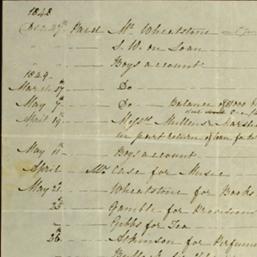 1848
Dec 29th Paid Mr Wheatstone
" S. W. on Loan
" Boys account
1849
March 17th " Do
May 9th " Do Balance of 1000
April 19th " Messrs Mullens Marsha
in part return of loan
May 11 " Boys account
April Mr Case for Music
May 21 " Wheatstone for Books
23 " Gamble for Provisions
" Gibbs for Tea
26 " Atkinson for Perfume